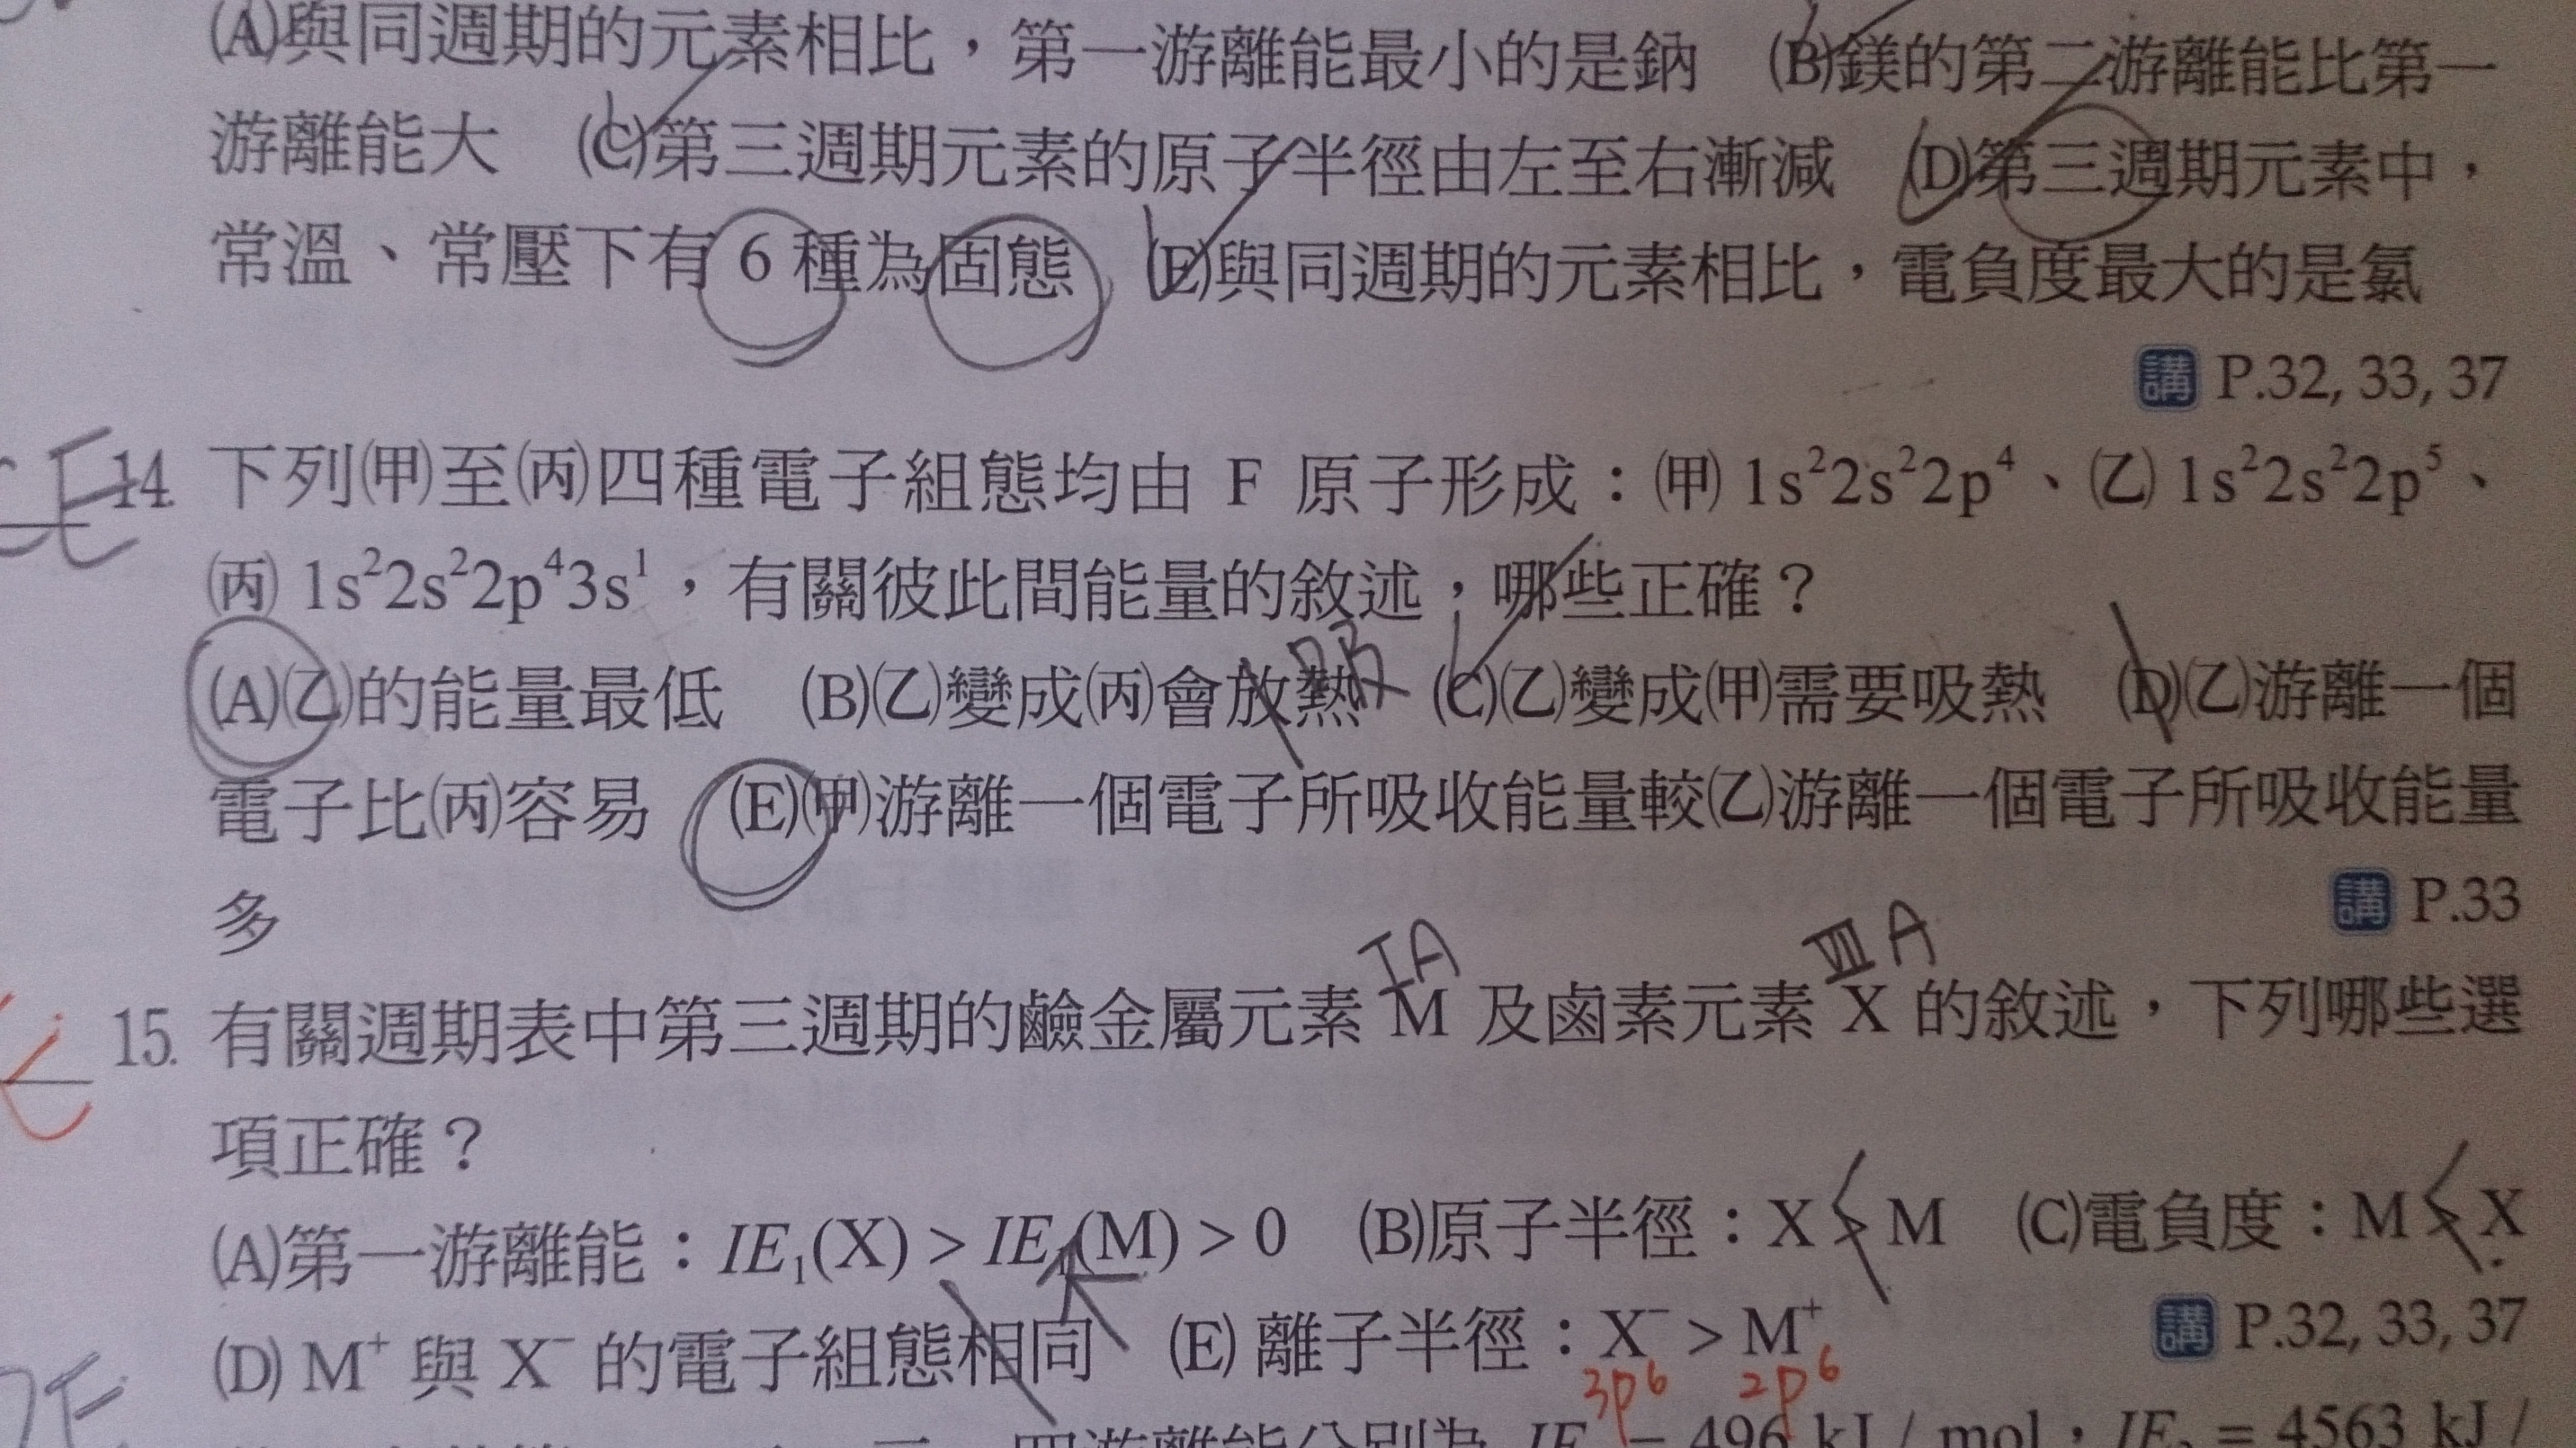 (A)與同週期的元素相比，第一游離能最小的是鈉　(B)鎂的第二游離能比第一
游離能大　(C)第三週期元素的原子半徑由左至右漸減　(D)第三週期元素中，
常溫、常壓下有 6 種為固態　(E)與同週期的元素相比，電負度最大的是氯
講 P.32, 33, 37
E
14. 下列(甲)至(丙)四種電子組態均由 F 原子形成：(甲) 1s²2s²2p⁴、(乙) 1s²2s²2p⁵、
(丙) 1s²2s²2p⁴3s¹，有關彼此間能量的敘述，哪些正確？
吸
(A)(乙)的能量最低　(B)(乙)變成(丙)會放熱　(C)(乙)變成(甲)需要吸熱　(D)(乙)游離一個
電子比(丙)容易　(E)(甲)游離一個電子所吸收能量較(乙)游離一個電子所吸收能量
多
講 P.33
IA　ⅦA
15. 有關週期表中第三週期的鹼金屬元素 M 及鹵素元素 X 的敘述，下列哪些選
項正確？
(A)第一游離能：IE₁(X) > IE₁(M) > 0　(B)原子半徑：X > M　(C)電負度：M > X
(D) M⁺ 與 X⁻ 的電子組態相同　(E) 離子半徑：X⁻ > M⁺
講 P.32, 33, 37
3p⁶　2p⁶
游離能分別為 IE = 496 kJ / mol，IE = 4563 kJ /